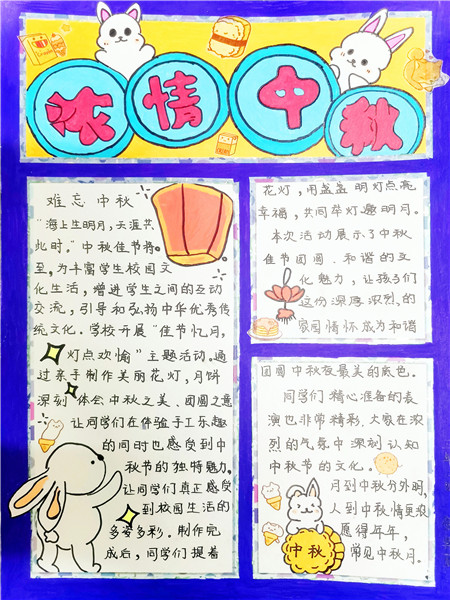 浓情中秋
难忘中秋
“海上生明月，天涯共
此时。”中秋佳节将
至，为丰富学生校园文
化生活，增进学生之间的互动
交流，引导和弘扬中华优秀传
统文化。学校开展“佳节忆月，
灯点欢愉”主题活动。通
过亲手制作美丽花灯，月饼
深刻体会中秋之美、团圆之意
让同学们在体验手工乐趣
的同时也感受到中
秋节的独特魅力。
让同学们真正感受
到校园生活的
多姿多彩。制作完
成后，同学们提着
花灯，用盏盏明灯点亮
幸福，共同举灯邀明月。
本次活动展示了中秋
佳节团圆、和谐的文
化魅力，让孩子们
这份深厚浓烈的
家园情怀成为和谐
团圆中秋夜最美的底色。
同学们精心准备的表
演也非常精彩，大家在浓
烈的气氛中深刻认知
中秋节的文化。
月到中秋分外明，
人到中秋情更浓
愿得年年，
常见中秋月。
中秋